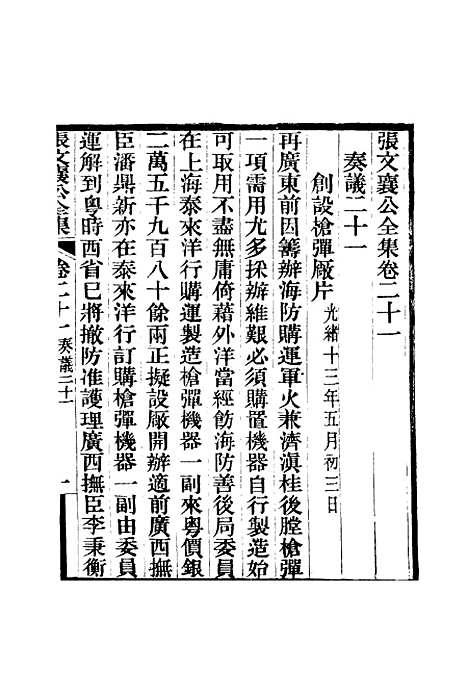 張文襄公全集卷二十一
奏議二十一
創設槍彈廠片光緒十三年五月初三日
再廣東前因籌辦海防購運軍火兼濟滇桂後膛槍彈
一項需用尤多採辦維艱必須購置機器自行製造始
可取用不盡無庸倚藉外洋當經飭海防善後局委員
在上海泰來洋行購運製造槍彈機器一副來粵價銀
二萬五千九百八十餘兩正擬設廠開辦適前廣西撫
臣潘鼎新亦在泰來洋行訂購槍彈機器一副由委員
運解到粵時西省已將撤防准護理廣西撫臣李秉衡
張文襄公全集 卷二十一 奏議二十一 一